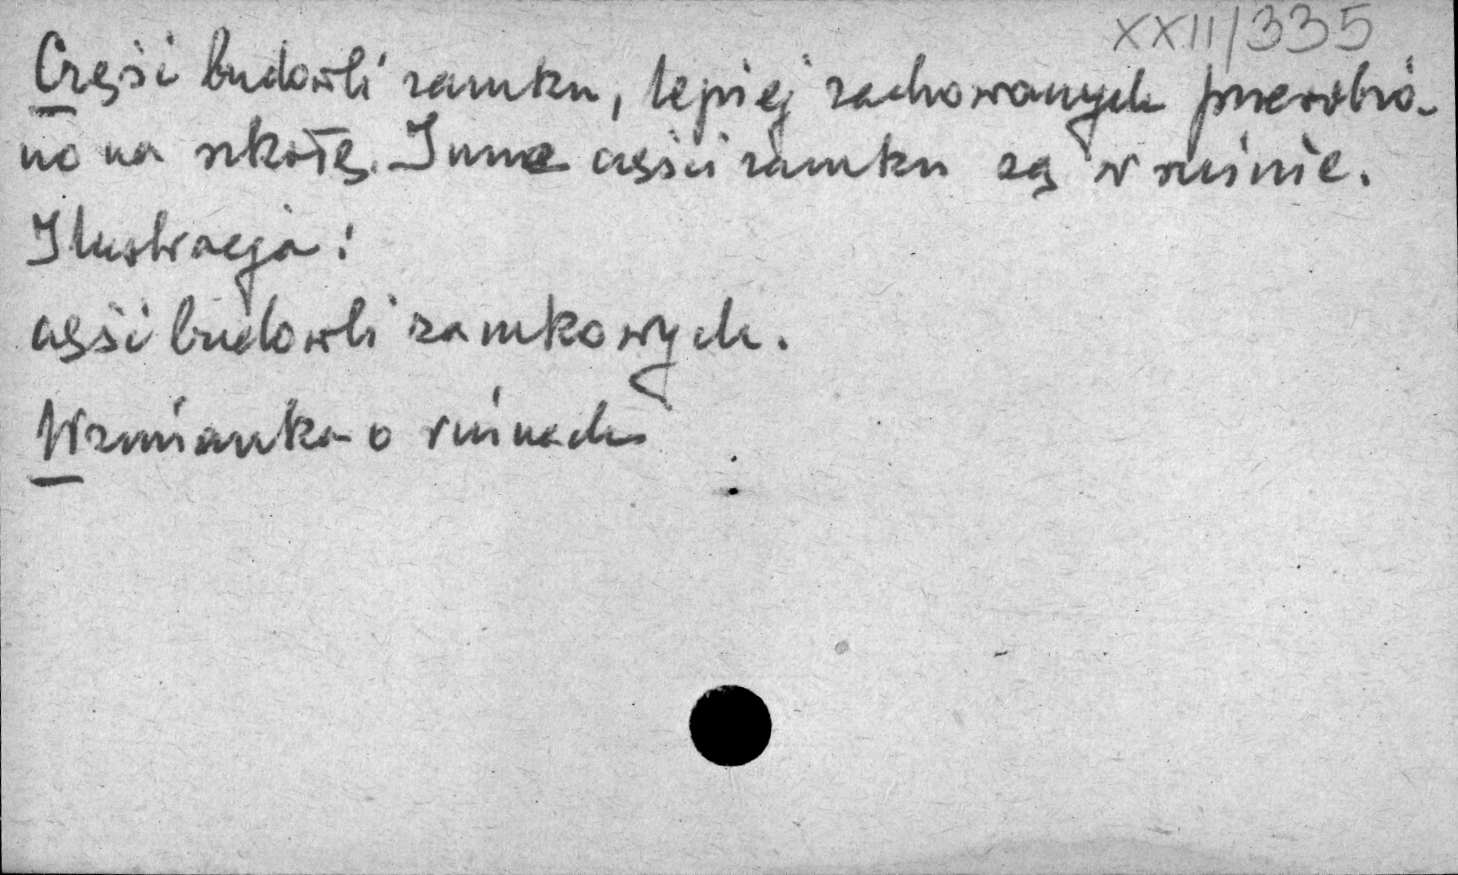 XXII/335
Części budowli zamku, lepiej zachowanych przerobio-
no na szkołę. Inne części zamku są w ruinie.
Ilustracja:
części budowli zamkowych.
Wzmianka o ruinach